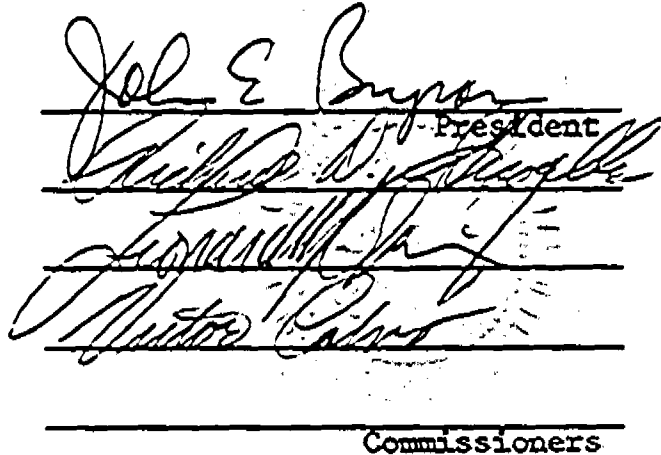 John E Bryson
President
Richard D. Gravelle
Leonard M. Grimes, Jr.
Victor Calvo
Commissioners